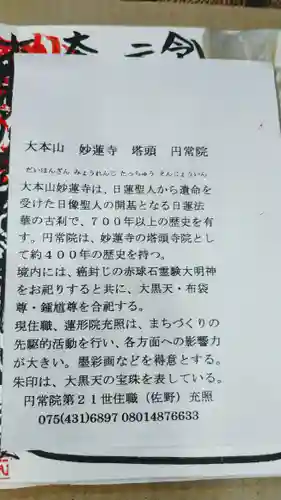 大本山 妙蓮寺 塔頭 円常院
だいほんざん みょうれんじ たっちゅう えんじょういん
大本山妙蓮寺は、日蓮聖人から遺命を
受けた日像聖人の開基となる日蓮法
華の古刹で、７００年以上の歴史を有
す。円常院は、妙蓮寺の塔頭寺院とし
て約４００年の歴史を持つ。
境内には、癌封じの赤球石霊験大明神
をお祀りすると共に、大黒天・布袋
尊・鍾馗尊を合祀する。
現住職、蓮形院充照は、まちづくりの
先駆的活動を行い、各方面への影響力
が大きい。墨彩画などを得意とする。
朱印は、大黒天の宝珠を表している。
円常院第２１世住職（佐野）充照
075(431)6897 08014876633